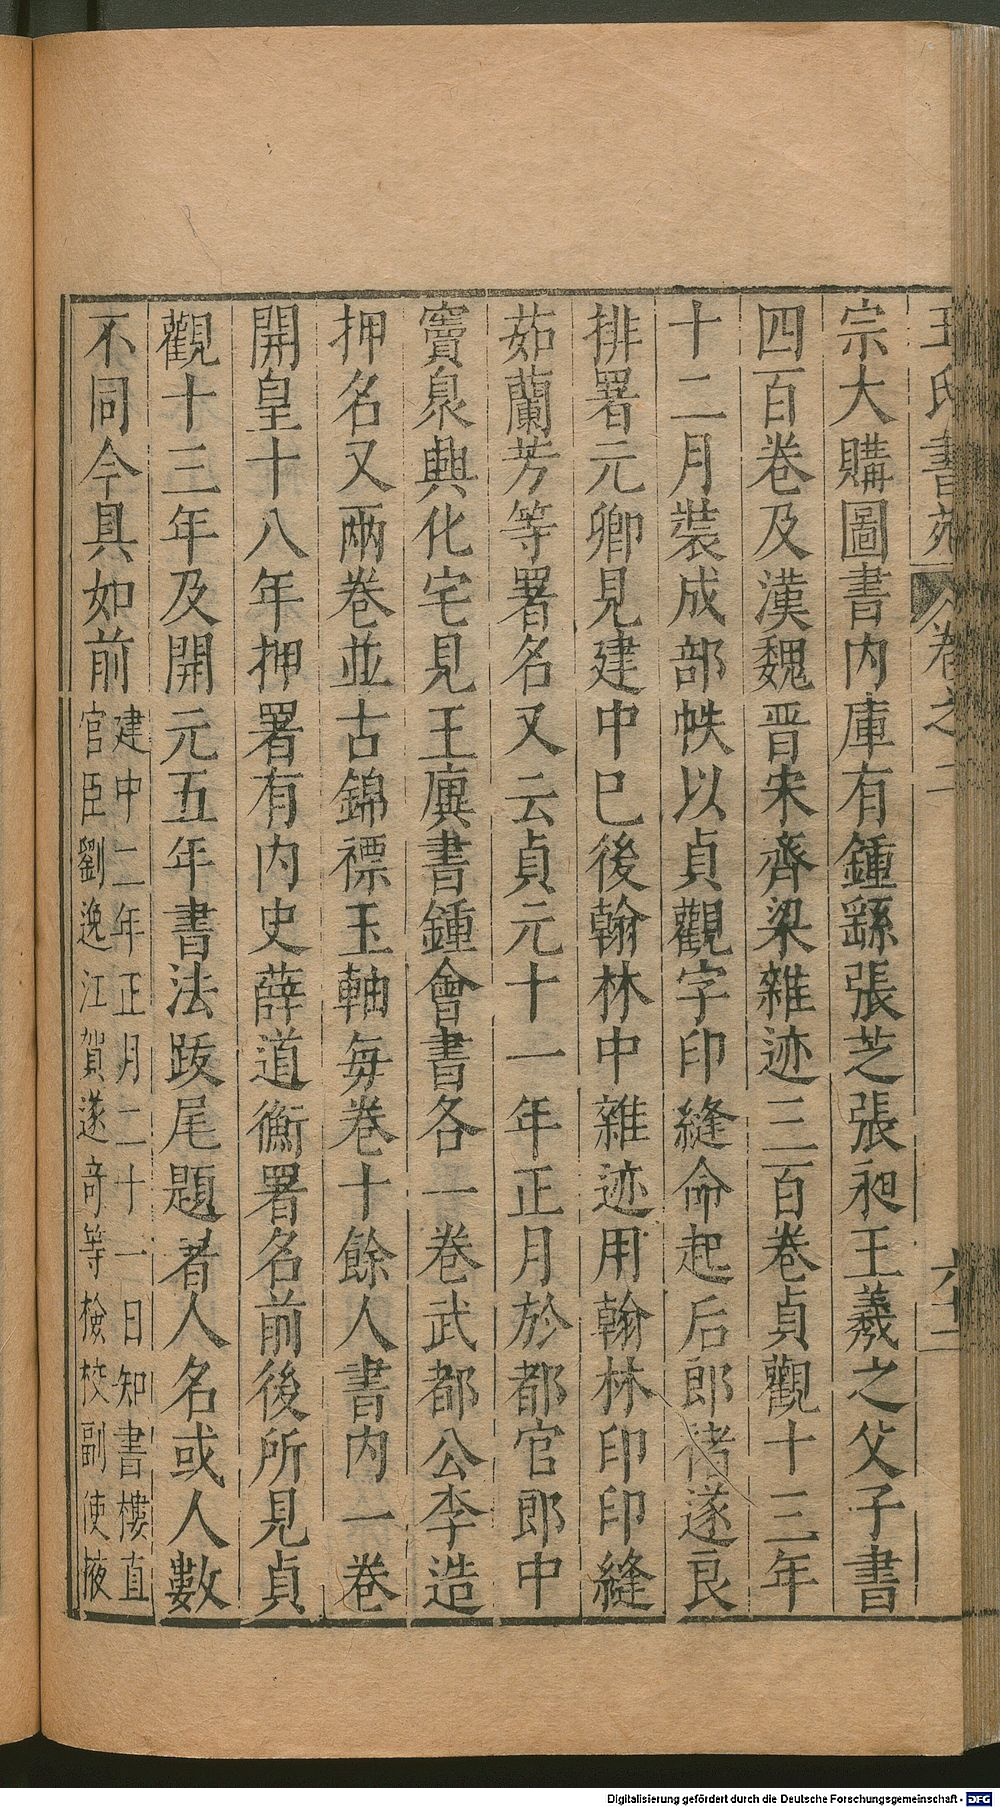 王氏書苑 卷之二 六十一
宗大購圖書内庫有鍾繇張芝張昶王羲之父子書
四百卷及漢魏晋宋齊梁雜迹三百卷貞觀十三年
十二月裝成部帙以貞觀字印縫命起后郎褚遂良
排署元卿見建中巳後翰林中雜迹用翰林印印縫
茹蘭芳等署名又云貞元十一年正月於都官郎中
竇泉興化宅見王廙書鍾會書各一卷武都公李造
押名又兩卷並古錦褾玉軸每卷十餘人書内一卷
開皇十八年押署有内史薛道衡署名前後所見貞
觀十三年及開元五年書法跋尾題著人名或人數
不同今具如前
建中二年正月二十一日知書樓直
官臣劉逸江賀遂竒等檢校副使掖
Digitalisierung gefördert durch die Deutsche Forschungsgemeinschaft - DFG